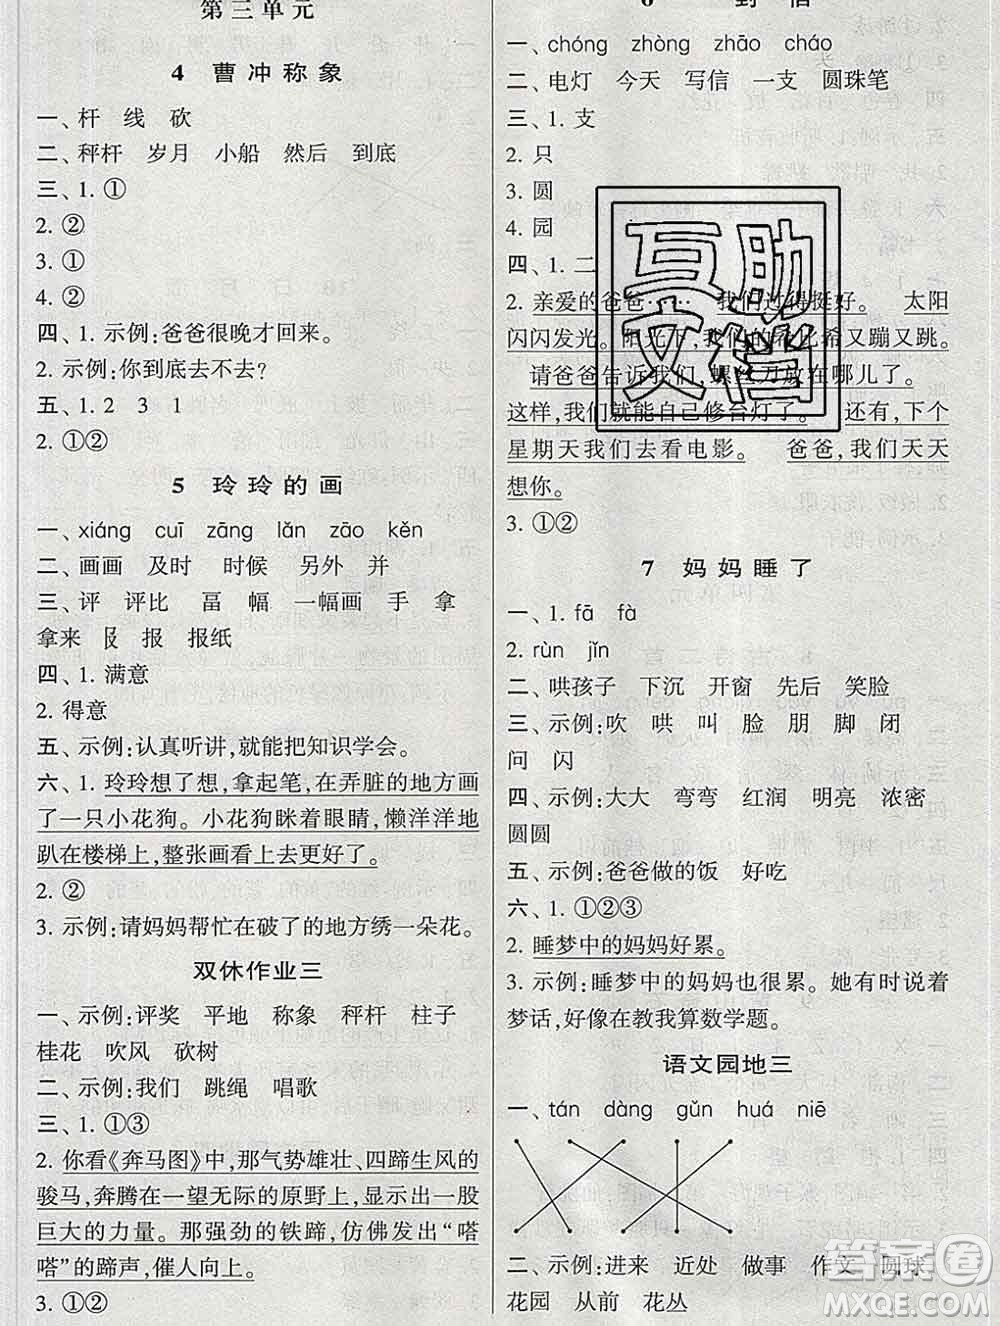 第三单元
4 曹冲称象
一、杆 线 砍
二、秤杆 岁月 小船 然后 到底
三、1. ①
2. ②
3. ①
4. ②
四、1. 示例:爸爸很晚才回来。
2. 示例:你到底去不去?
五、1. 2 3 1
2. ①②
5 玲玲的画
一、xiáng cuī zāng lǎn zāo kěn
二、画画 及时 时候 另外 并
三、评 评比 畐 幅 一幅画 手 拿
拿来 𠬝 报 报纸
四、1. 满意
2. 得意
五、示例:认真听讲,就能把知识学会。
六、1. 玲玲想了想,拿起笔,在弄脏的地方画
了一只小花狗。小花狗眯着眼睛,懒洋洋地
趴在楼梯上,整张画看上去更好了。
2. ②
3. 示例:请妈妈帮忙在破了的地方绣一朵花。
双休作业三
一、示例:评奖 平地 称象 秤杆 柱子
桂花 吹风 砍树
二、示例:我们 跳绳 唱歌
三、1. ①③
2. 你看《奔马图》中,那气势雄壮、四蹄生风的
骏马,奔腾在一望无际的原野上,显示出一股
巨大的力量。那强劲的铁蹄,仿佛发出“嗒
嗒”的蹄声,催人向上。
3. ①②
6 一封信
一、chóng zhòng zhāo cháo
二、电灯 今天 写信 一支 圆珠笔
三、1. 支
2. 只
3. 圆
4. 园
四、1. 二
2. 亲爱的爸爸…… 我们过得挺好。 太阳
闪闪发光。阳光下,我们的希比希又蹦又跳。
请爸爸告诉我们,螺丝刀放在哪儿了。
这样,我们就能自己修台灯了。 还有,下个
星期天我们去看电影。 爸爸,我们天天
想你。
3. ①②
7 妈妈睡了
一、1. fā fà
2. rùn jǐn
二、哄孩子 下沉 开窗 先后 笑脸
三、示例:吹 哄 叫 脸 朋 脚 闭
问 闪
四、示例:大大 弯弯 红润 明亮 浓密
圆圆
五、示例:爸爸做的饭 好吃
六、1. ①②③
2. 睡梦中的妈妈好累。
3. 示例:睡梦中的妈妈也很累。她有时说着
梦话,好像在教我算数学题。
语文园地三
一、tán dàng gǔn huá niē
二、示例:进来 近处 做事 作文 圆球
花园 从前 花丛
互助
文档
答案圈
MXQE.COM